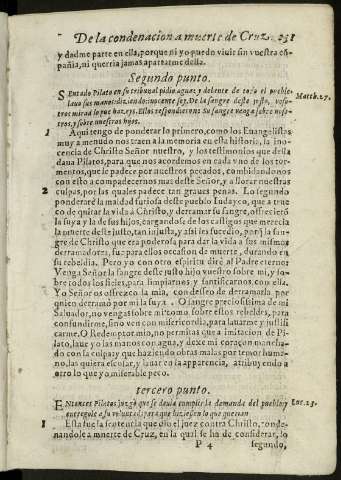 De la condenacion a muerte de Cruz. 231
y dadme parte en ella, porque ni yo puedo viuir sin vuestra cõ-
pañia, ni querria jamas apartarme della.
Segundo punto.
SEntado Pilato en su tribunal pidio agua, y delante de todo el pueblo
laua sus manos: diziendo: inocente soy, De la sangre deste justo, voso-
tros mirad lo que hazeys. Ellos respondieron: Su sangre venga sobre noso-
tros, y sobre nuestros hijos.
Matth. 27.
1 Aqui tengo de ponderar lo primero, como los Euangelistas
muy a menudo nos traen a la memoria en esta historia, la ino-
cencia de Christo Señor nuestro, y los testimonios que della
daua Pilatos, para que nos acordemos en cada vno de los tor-
mentos, que le padece por nuestros pecados, combidandonos
con esto a compadecernos mas deste Señor, y a llorar nuestras
2 culpas, por las quales padece tan graues penas. Lo segundo
ponderarè la maldad furiosa deste pueblo Iudayco, que a true
co de quitar la vida à Christo, y derramar su sangre, ofrecieró
la suya y la de sus hijos, cargandose de los castigos que merecia
la muerte deste justo, tan injusta, y assi les sucedio, porq̃ la san-
gre de Christo que era poderosa para dar la vida a sus mismos
derramadores, fue para ellos occasion de muerte, durando en
su rebeldia. Pero yo con otro espiritu dirè al Padre eterno:
Venga Señor la sangre deste justo hijo vuestro sobre mi, y so-
bre todos los fieles, para limpiarnos y santificarnos con ella.
Yo Señor os ofrezco la mia, con desseo de derramarla por
quien derramò por mi la suya. O sangre preciosissima de mi
Saluador, no vengas sobre mi como sobre estos rebeldes, para
confundirme, sino ven con misericordia, para lauarme y justifi
carme. O Redemptor mio, no permitas que a imitacion de Pi-
lato, laue yo las manos con agua, y dexe mi coraçon mancha-
do con la culpa: y que haziendo obras malas por temor huma-
no, las quiera escusar, y lauar en la apariencia, atribuyendo a
otro lo que yo miserable peco.
tercero punto.
ENtonces Pilatos juzgò que se deuia cumplir la demanda del pueblo, y
entregole a su voluntad, para que hiziessen lo que querian
Luc. 23.
1 Esta fue la sentencia que dio el juez contra Christo, conde-
nandole a muerte de Cruz, en la qual se ha de considerar, lo
P 4 segundo,